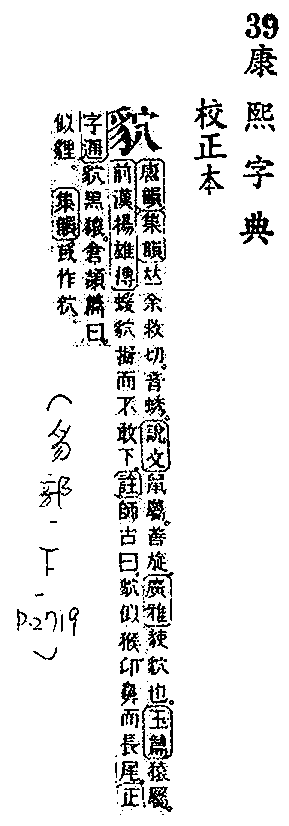 39康熙字典
校正本
貁
唐韻集韻𠀤余救切音蜼說文鼠屬善旋廣雅貁也玉篇猿屬
前漢揚雄傳蝯貁擬而不敢下註師古曰貁似猴卬鼻而長尾正
字通貁黑猿倉頡篇曰
似貍集韻或作狖
(豸部-下-
P.2719)